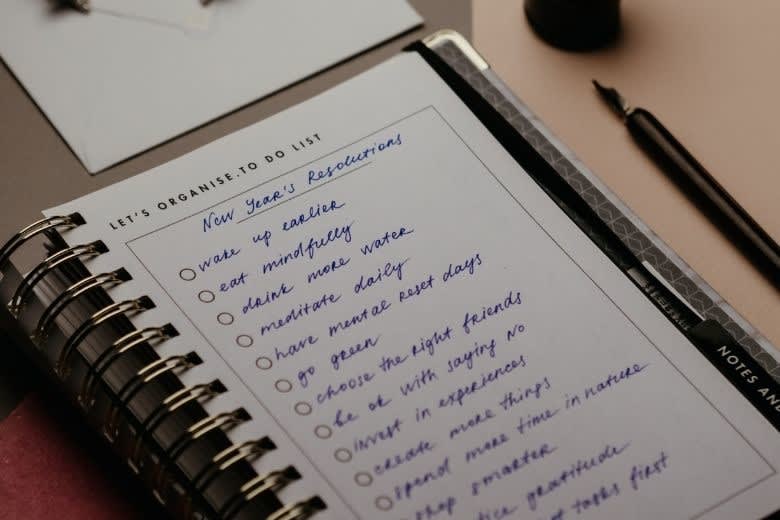 LET'S ORGANISE·TO DO LIST
New Year's Resolutions
wake up earlier
eat mindfully
drink more water
meditate daily
have mental reset days
go green
choose the right friends
be ok with saying No
invest in experiences
create more things
spend more time in nature
shop smarter
gratitude
tasks first
NOTES AND